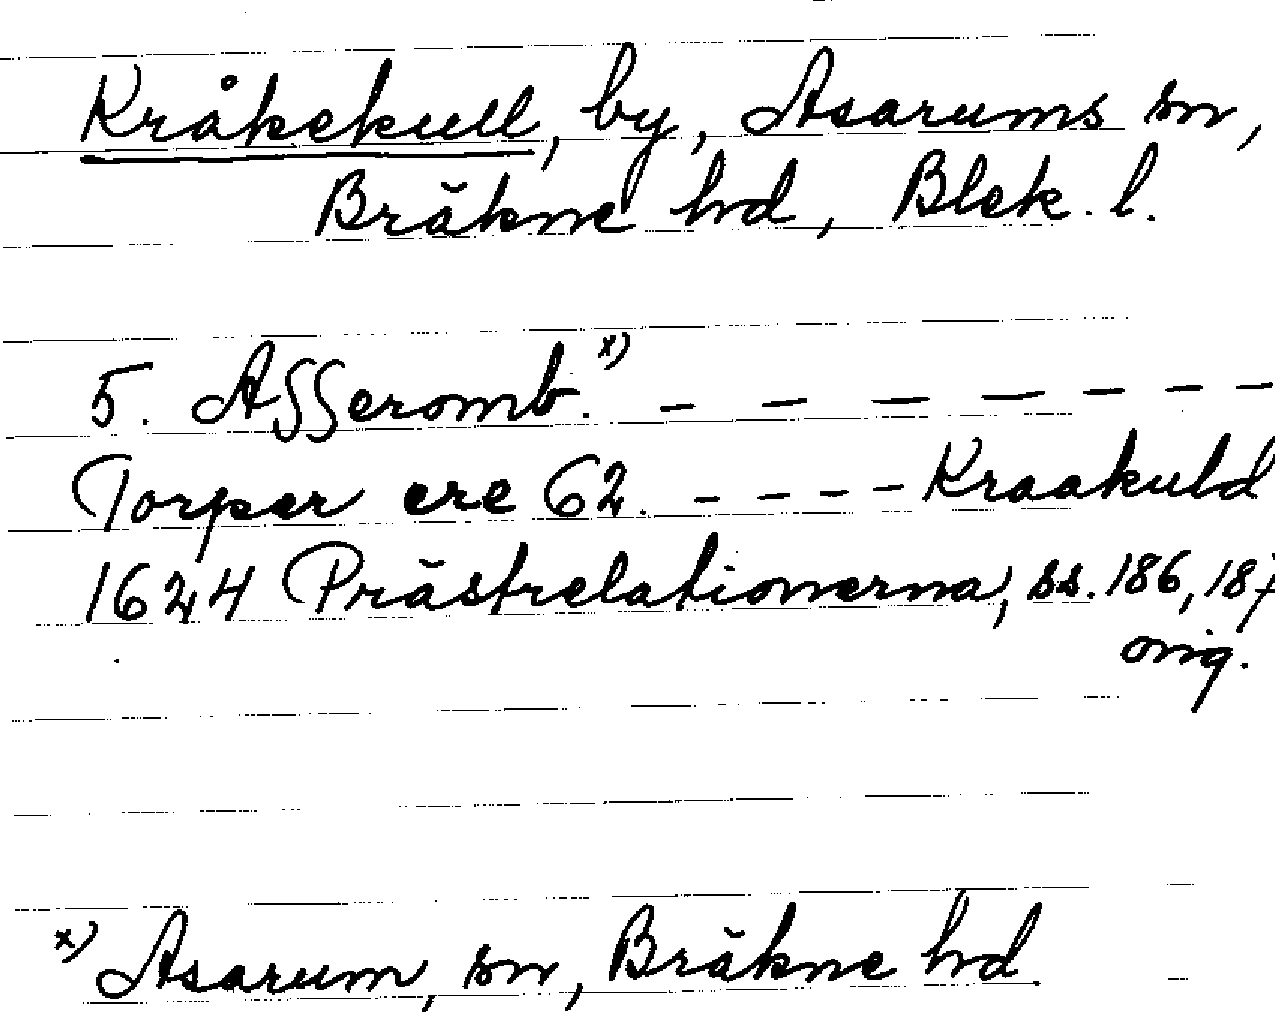 Kråkekull, by, Asarums sn,
Bräkne hd, Blek. l.
5. Asseromb. x) — — — — — — — —
Torper ere 62. - - - - Kraakuld
1624 Prästrelationerna, ss. 186, 187
orig.
x) Asarum, sn, Bräkne hd.